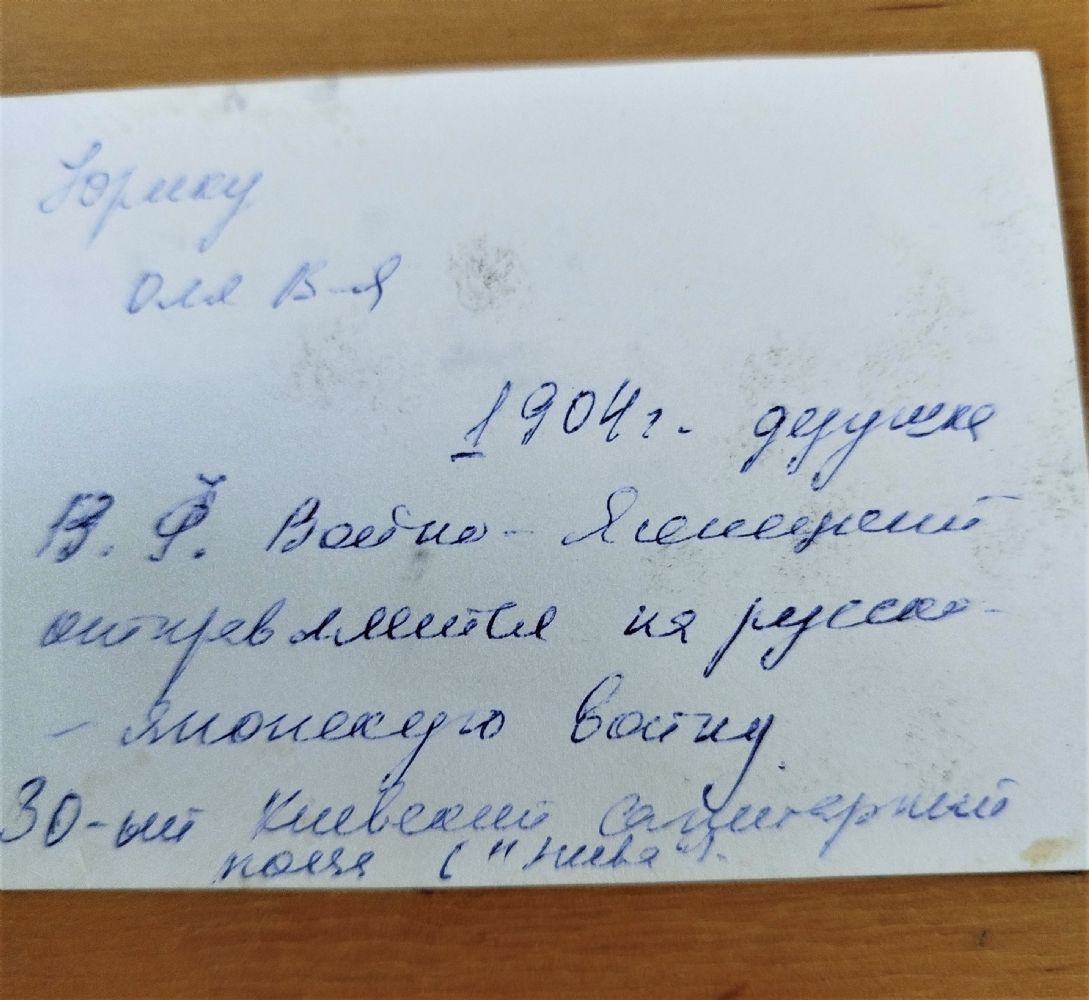 Юрику
Оля В-Я
1904 г. дедушка
В. Ф. Войно-Ясенецкий
отправляется на русско-
- японскую войну.
30-ый Киевский санитарный
("Нива").